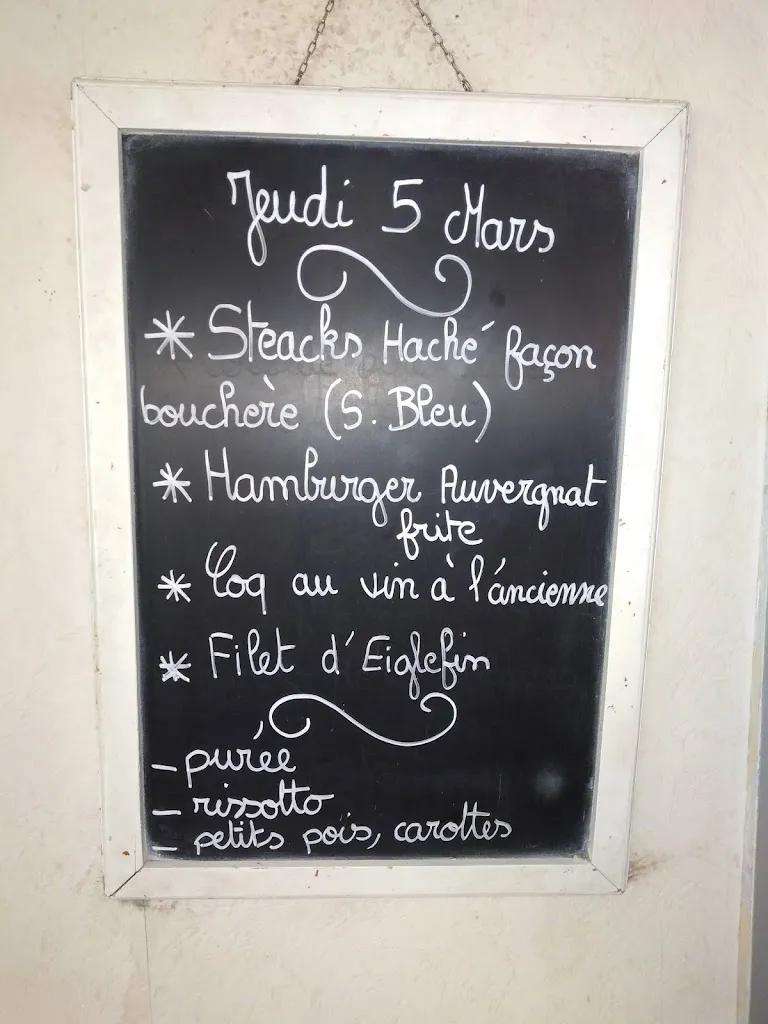 Jeudi 5 Mars
* Steacks Haché façon
bouchère (S. Bleu)
* Hamburger Auvergnat
frite
* Coq au vin à l'ancienne
* Filet d'Eiglefin
- purée
- rissotto
- petits pois, carottes